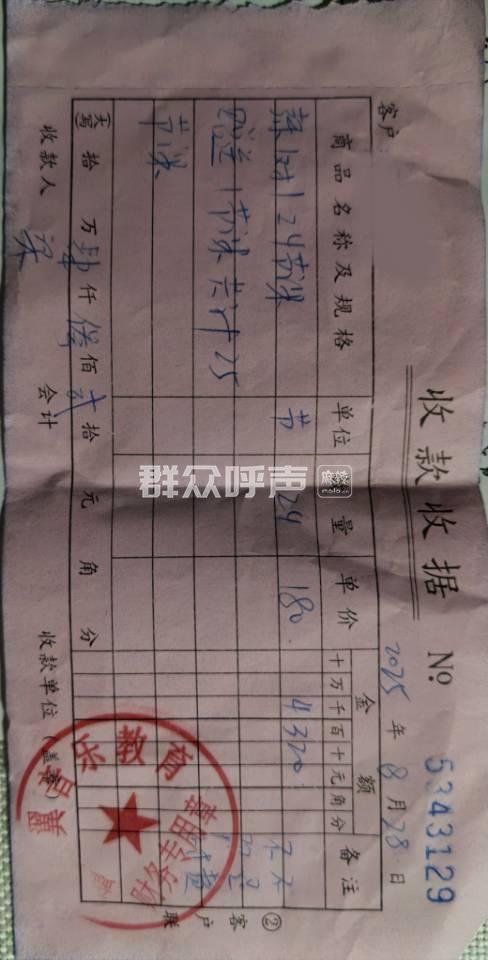 收款收据 № 5343129
2025年8月28日
客户
商品名称及规格 单位 数量 单价 金额 备注
十万千百十元角分
24节课 节 24 180. 4320
赠送1节课共计25
节课
大写 拾 万肆仟 佰贰拾 元 角 分
收款人 会计 收款单位（盖章）
②客户联
乐教育
财务专用章
群众呼声